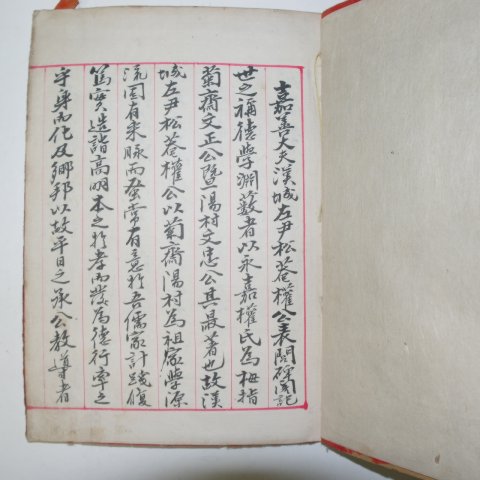 嘉善大夫漢城左尹松菴權公表閭碑閣記
世之稱德學淵藪者以永嘉權氏為拇指
菊齋文正公暨陽村文忠公其最著也故漢
城左尹松菴權公以菊齋陽村為祖家學源
流固有來脉而蚤常有意於吾儒家計踐復
篤實造詣高明本之於孝而發為德行宰之
守乘而化及鄉邦以故平日之承公教導者